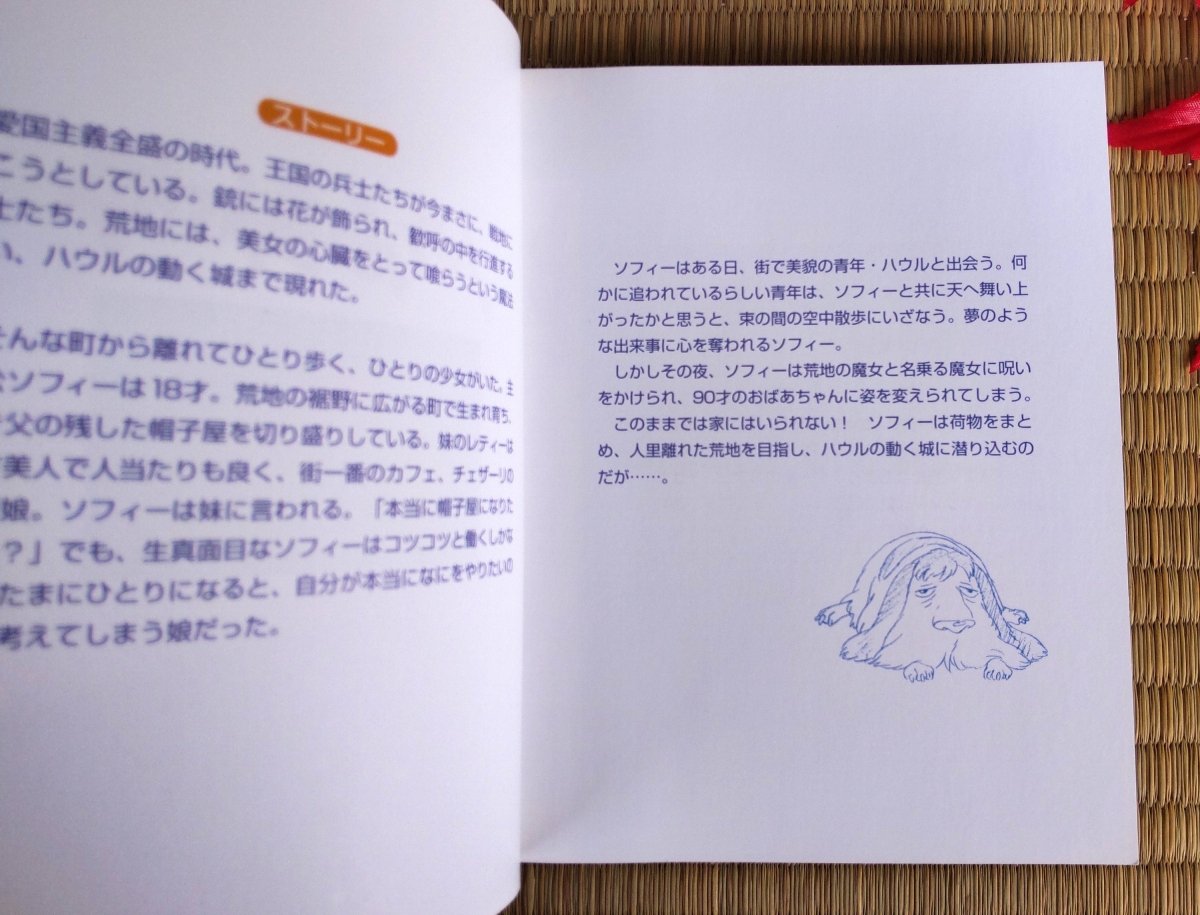 ストーリー
愛国主義全盛の時代。王国の兵士たちが今まさに、戦地に
こうとしている。銃には花が飾られ、歓呼の中を行進する
士たち。荒地には、美女の心臓をとって喰らうという魔法
い、ハウルの動く城まで現れた。
そんな町から離れてひとり歩く、ひとりの少女がいた。主
なソフィーは18才。荒地の裾野に広がる町で生まれ育ち、
父の残した帽子屋を切り盛りしている。妹のレティーは
美人で人当たりも良く、街一番のカフェ、チェザーリの
娘。ソフィーは妹に言われる。「本当に帽子屋になりた
？」でも、生真面目なソフィーはコツコツと働くしかな
たまにひとりになると、自分が本当になにをやりたいの
考えてしまう娘だった。
ソフィーはある日、街で美貌の青年・ハウルと出会う。何
かに追われているらしい青年は、ソフィーと共に天へ舞い上
がったかと思うと、束の間の空中散歩にいざなう。夢のよう
な出来事に心を奪われるソフィー。
しかしその夜、ソフィーは荒地の魔女と名乗る魔女に呪い
をかけられ、90才のおばあちゃんに姿を変えられてしまう。
このままでは家にはいられない！　ソフィーは荷物をまと
め、人里離れた荒地を目指し、ハウルの動く城に潜り込むの
だが……。